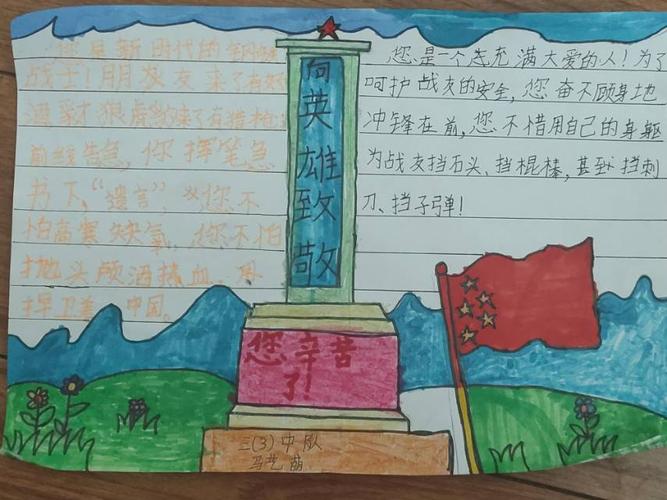 您是新时代的钢铁
战士！朋友来了有好酒
遇豺狼虎豹来了有猎枪
前线告急，你挥笔急
书下“遗言”，您不
怕高寒缺氧，您不怕
抛头颅洒热血，
捍卫着中国。
向英雄致敬
您是一个充满大爱的人！为了
呵护战友的安全，您奋不顾身地
冲锋在前，您不惜用自己的身躯
为战友挡石头、挡棍棒，甚至挡刺
刀、挡子弹！
您辛苦
了！
三(3)中队
马艺萌